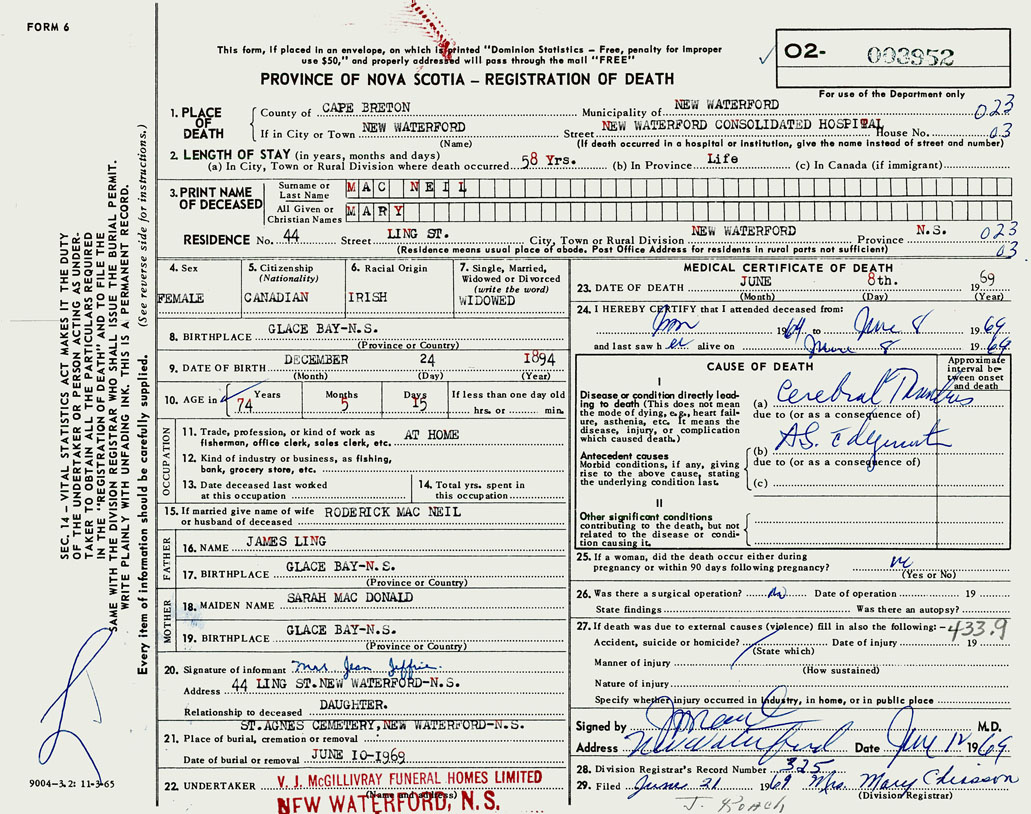 FORM 6
This form, if placed in an envelope, on which is printed "Dominion Statistics – Free, penalty for improper
use $50," and properly addressed will pass through the mail "FREE"
PROVINCE OF NOVA SCOTIA – REGISTRATION OF DEATH
O2- 003952
For use of the Department only
1. PLACE OF DEATH
County of CAPE BRETON Municipality of NEW WATERFORD 023
If in City or Town NEW WATERFORD Street NEW WATERFORD CONSOLIDATED HOSPITAL House No. 03
(Name) (If death occurred in a hospital or institution, give the name instead of street and number)
2. LENGTH OF STAY (in years, months and days)
(a) In City, Town or Rural Division where death occurred 58 Yrs. (b) In Province Life (c) In Canada (if immigrant)
3. PRINT NAME OF DECEASED
Surname or Last Name MAC NEIL
All Given or Christian Names MARY
RESIDENCE No. 44 Street LING ST. City, Town or Rural Division NEW WATERFORD Province N.S. 023
(Residence means usual place of abode. Post Office Address for residents in rural parts not sufficient) 03
4. Sex FEMALE
5. Citizenship (Nationality) CANADIAN
6. Racial Origin IRISH
7. Single, Married, Widowed or Divorced (write the word) WIDOWED
8. BIRTHPLACE GLACE BAY-N.S.
(Province or Country)
9. DATE OF BIRTH DECEMBER 24 1894
(Month) (Day) (Year)
10. AGE in 74 Years 5 Months 15 Days If less than one day old
hrs. or min.
OCCUPATION
11. Trade, profession, or kind of work as fisherman, office clerk, sales clerk, etc. AT HOME
12. Kind of industry or business, as fishing, bank, grocery store, etc.
13. Date deceased last worked at this occupation
14. Total yrs. spent in this occupation
15. If married give name of wife or husband of deceased RODERICK MAC NEIL
FATHER
16. NAME JAMES LING
17. BIRTHPLACE GLACE BAY-N.S.
(Province or Country)
MOTHER
18. MAIDEN NAME SARAH MAC DONALD
19. BIRTHPLACE GLACE BAY-N.S.
(Province or Country)
20. Signature of informant Mrs Jean Jeffrie
Address 44 LING ST.NEW WATERFORD-N.S.
Relationship to deceased DAUGHTER.
ST.AGNES CEMETERY,NEW WATERFORD-N.S.
21. Place of burial, cremation or removal
Date of burial or removal JUNE 10-1969
22. UNDERTAKER V. J. McGILLIVRAY FUNERAL HOMES LIMITED
(Name and address)
NEW WATERFORD, N. S.
MEDICAL CERTIFICATE OF DEATH
23. DATE OF DEATH JUNE 8th. 1969
(Month) (Day) (Year)
24. I HEREBY CERTIFY that I attended deceased from:
1964 to June 8 1969
and last saw her alive on June 8 1969
CAUSE OF DEATH
Approximate interval between onset and death
I
Disease or condition directly leading to death (This does not mean the mode of dying, e.g., heart failure, asthenia, etc. It means the disease, injury, or complication which caused death.)
(a) Cerebral
due to (or as a consequence of)
Antecedent causes
Morbid conditions, if any, giving rise to the above cause, stating the underlying condition last.
(b) A.S.
due to (or as a consequence of)
(c)
II
Other significant conditions contributing to the death, but not related to the disease or condition causing it.
25. If a woman, did the death occur either during pregnancy or within 90 days following pregnancy? no
(Yes or No)
26. Was there a surgical operation? no Date of operation 19
State findings Was there an autopsy?
27. If death was due to external causes (violence) fill in also the following: – 433.9
Accident, suicide or homicide? Date of injury 19
(State which)
Manner of injury
(How sustained)
Nature of injury
Specify whether injury occurred in industry, in home, or in public place
Signed by M.D.
Address New Waterford Date June 12 1969
28. Division Registrar's Record Number 325
29. Filed June 21 1969 Mrs. Mary Chiasson
(Division Registrar)
J. Roach
SEC. 14 – VITAL STATISTICS ACT MAKES IT THE DUTY
OF THE UNDERTAKER OR PERSON ACTING AS UNDER-
TAKER TO OBTAIN ALL THE PARTICULARS REQUIRED
IN THE "REGISTRATION OF DEATH" AND TO FILE THE
SAME WITH THE DIVISION REGISTRAR WHO SHALL ISSUE THE BURIAL PERMIT.
WRITE PLAINLY WITH UNFADING INK. THIS IS A PERMANENT RECORD.
Every item of information should be carefully supplied. (See reverse side for instructions.)
9004-3.2: 11-3-65